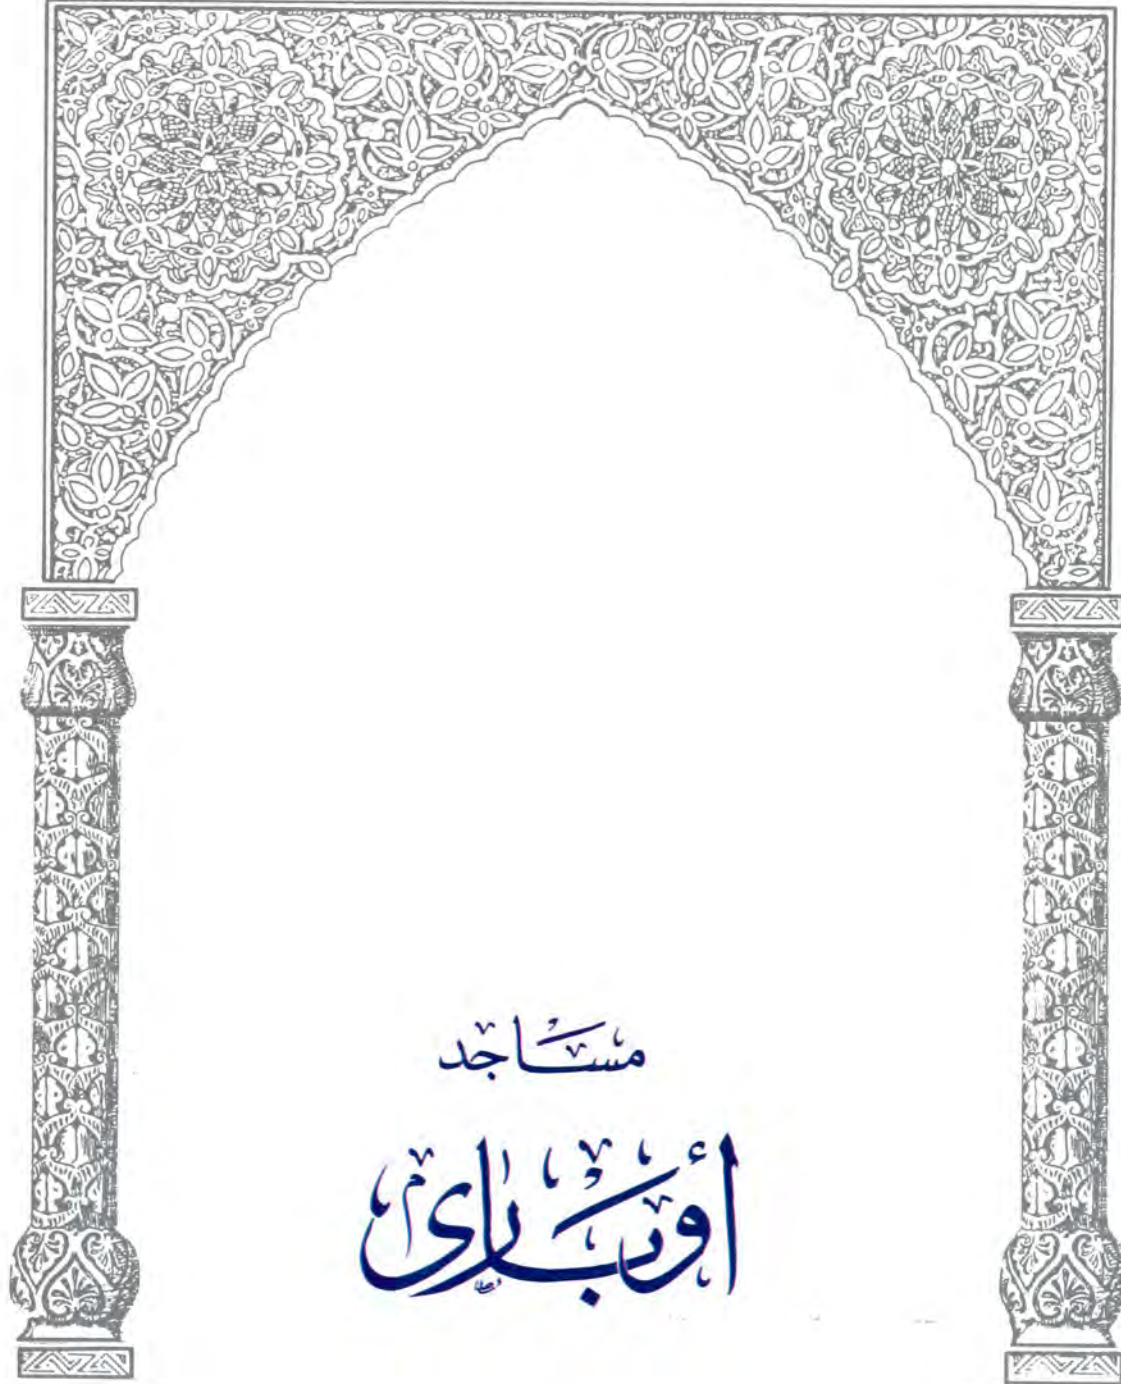 مساجد
أوباري